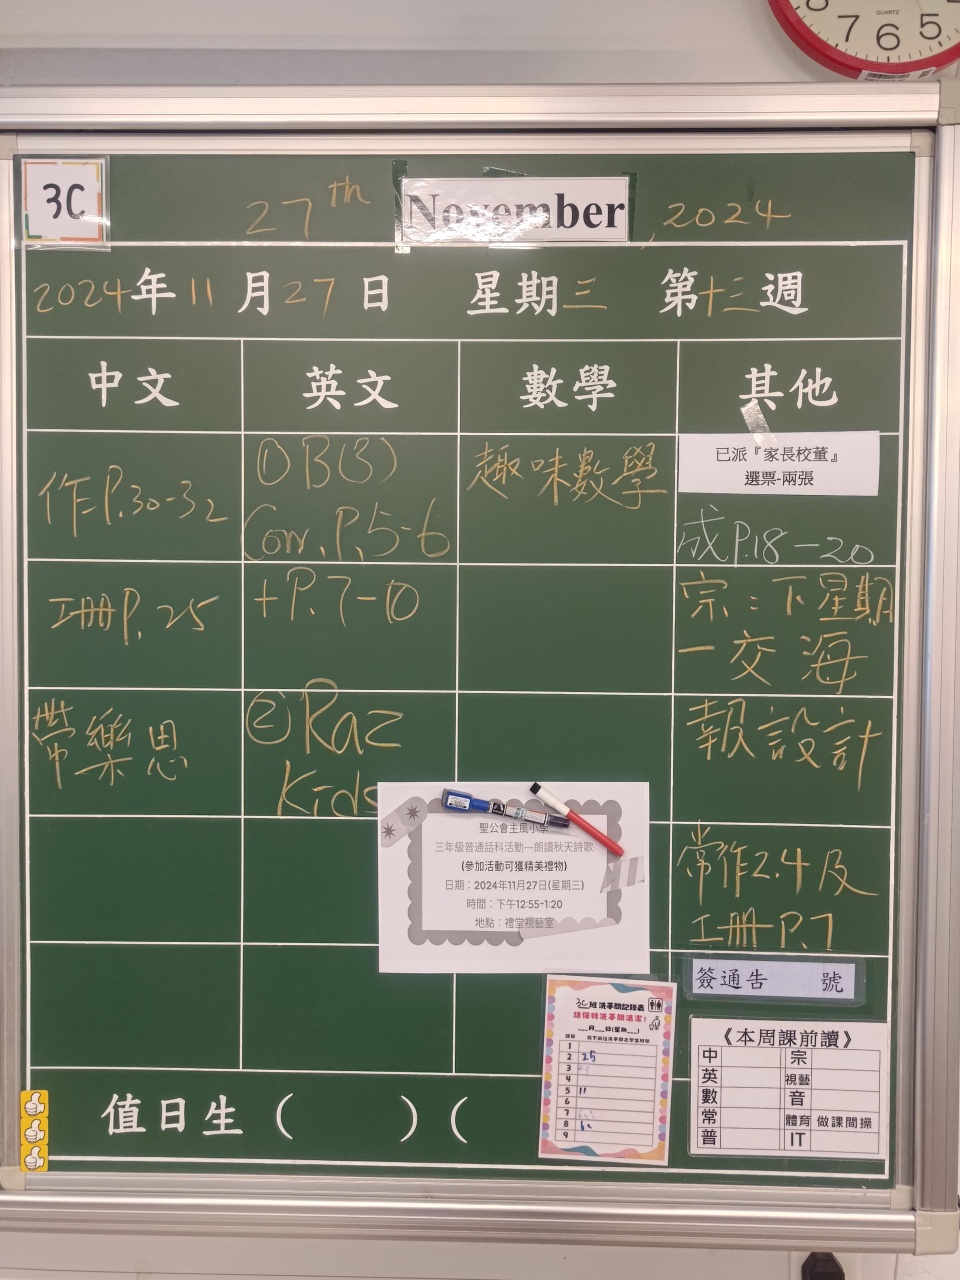 7 6 5
QUARTZ
3C
27th November, 2024
2024年11月27日 星期三 第十三週
中文 英文 數學 其他
作:P.30-32
工冊P.25
帶樂思
①B(3)
Corr.P.5-6
+P.7-10
②Raz
Kids
趣味數學
已派『家長校董』
選票-兩張
成P.18-20
宗:下星期
一交海
報設計
常作2.4及
工冊P.7
聖公會主風小學
三年級普通話科活動—朗讀秋天詩歌
(參加活動可獲精美禮物)
日期：2024年11月27日(星期三)
時間：下午12:55-1:20
地點：禮堂視藝室
簽通告 號
3C班洗手間記錄表
請保持洗手間清潔!
__月__日(星期__)
1
2 25
3
4
5 11
6
7
8
9
《本周課前讀》
中 宗
英 視藝
數 音
常 體育 做課間操
普 IT
值日生( )(